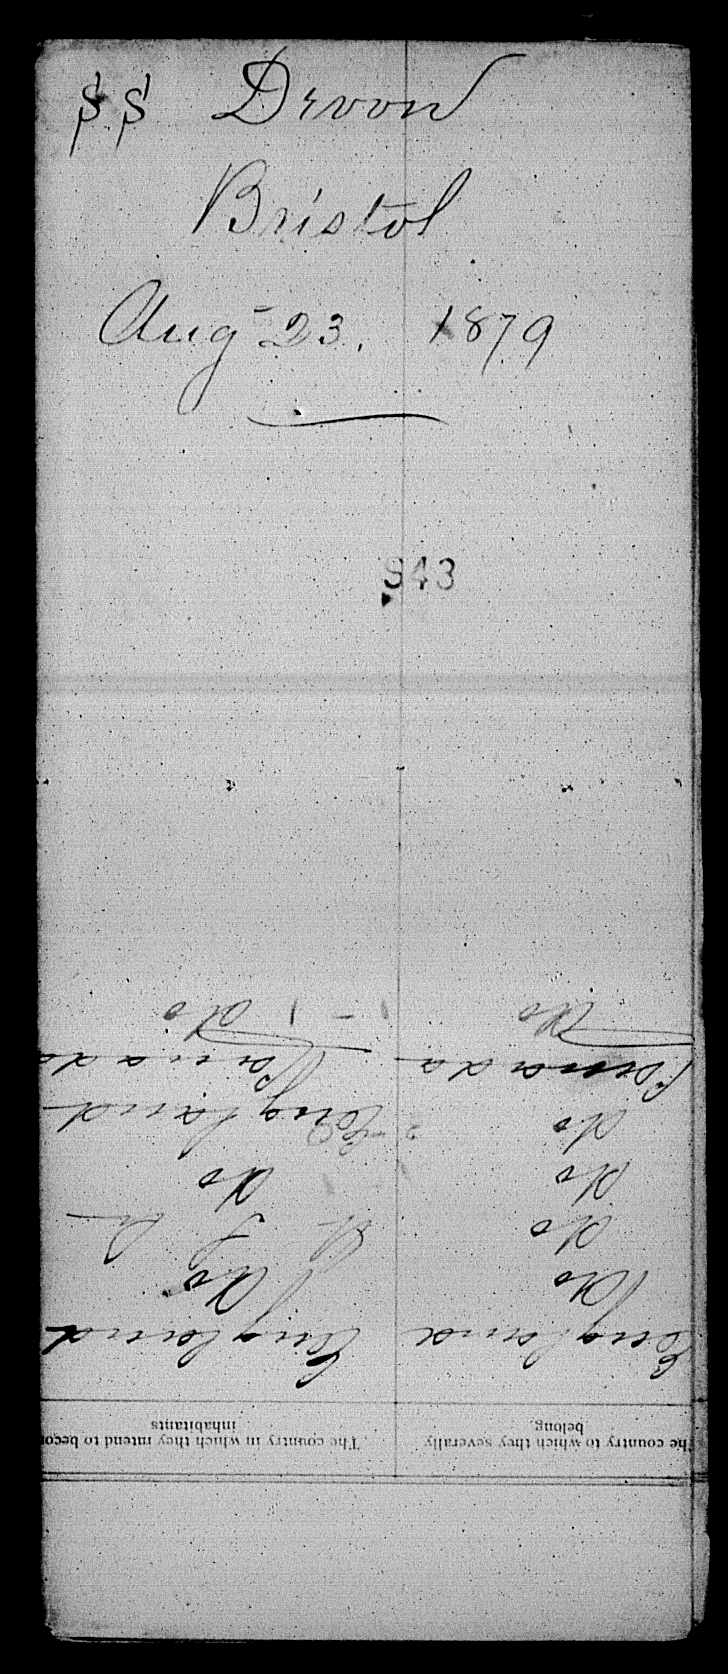 SS Devon
Bristol
Aug 23. 1879
943
The country to which they severally belong.
The country in which they intend to becom
inhabitants
England England
Do Do
do
do do
do England
Canada Canada
Do do